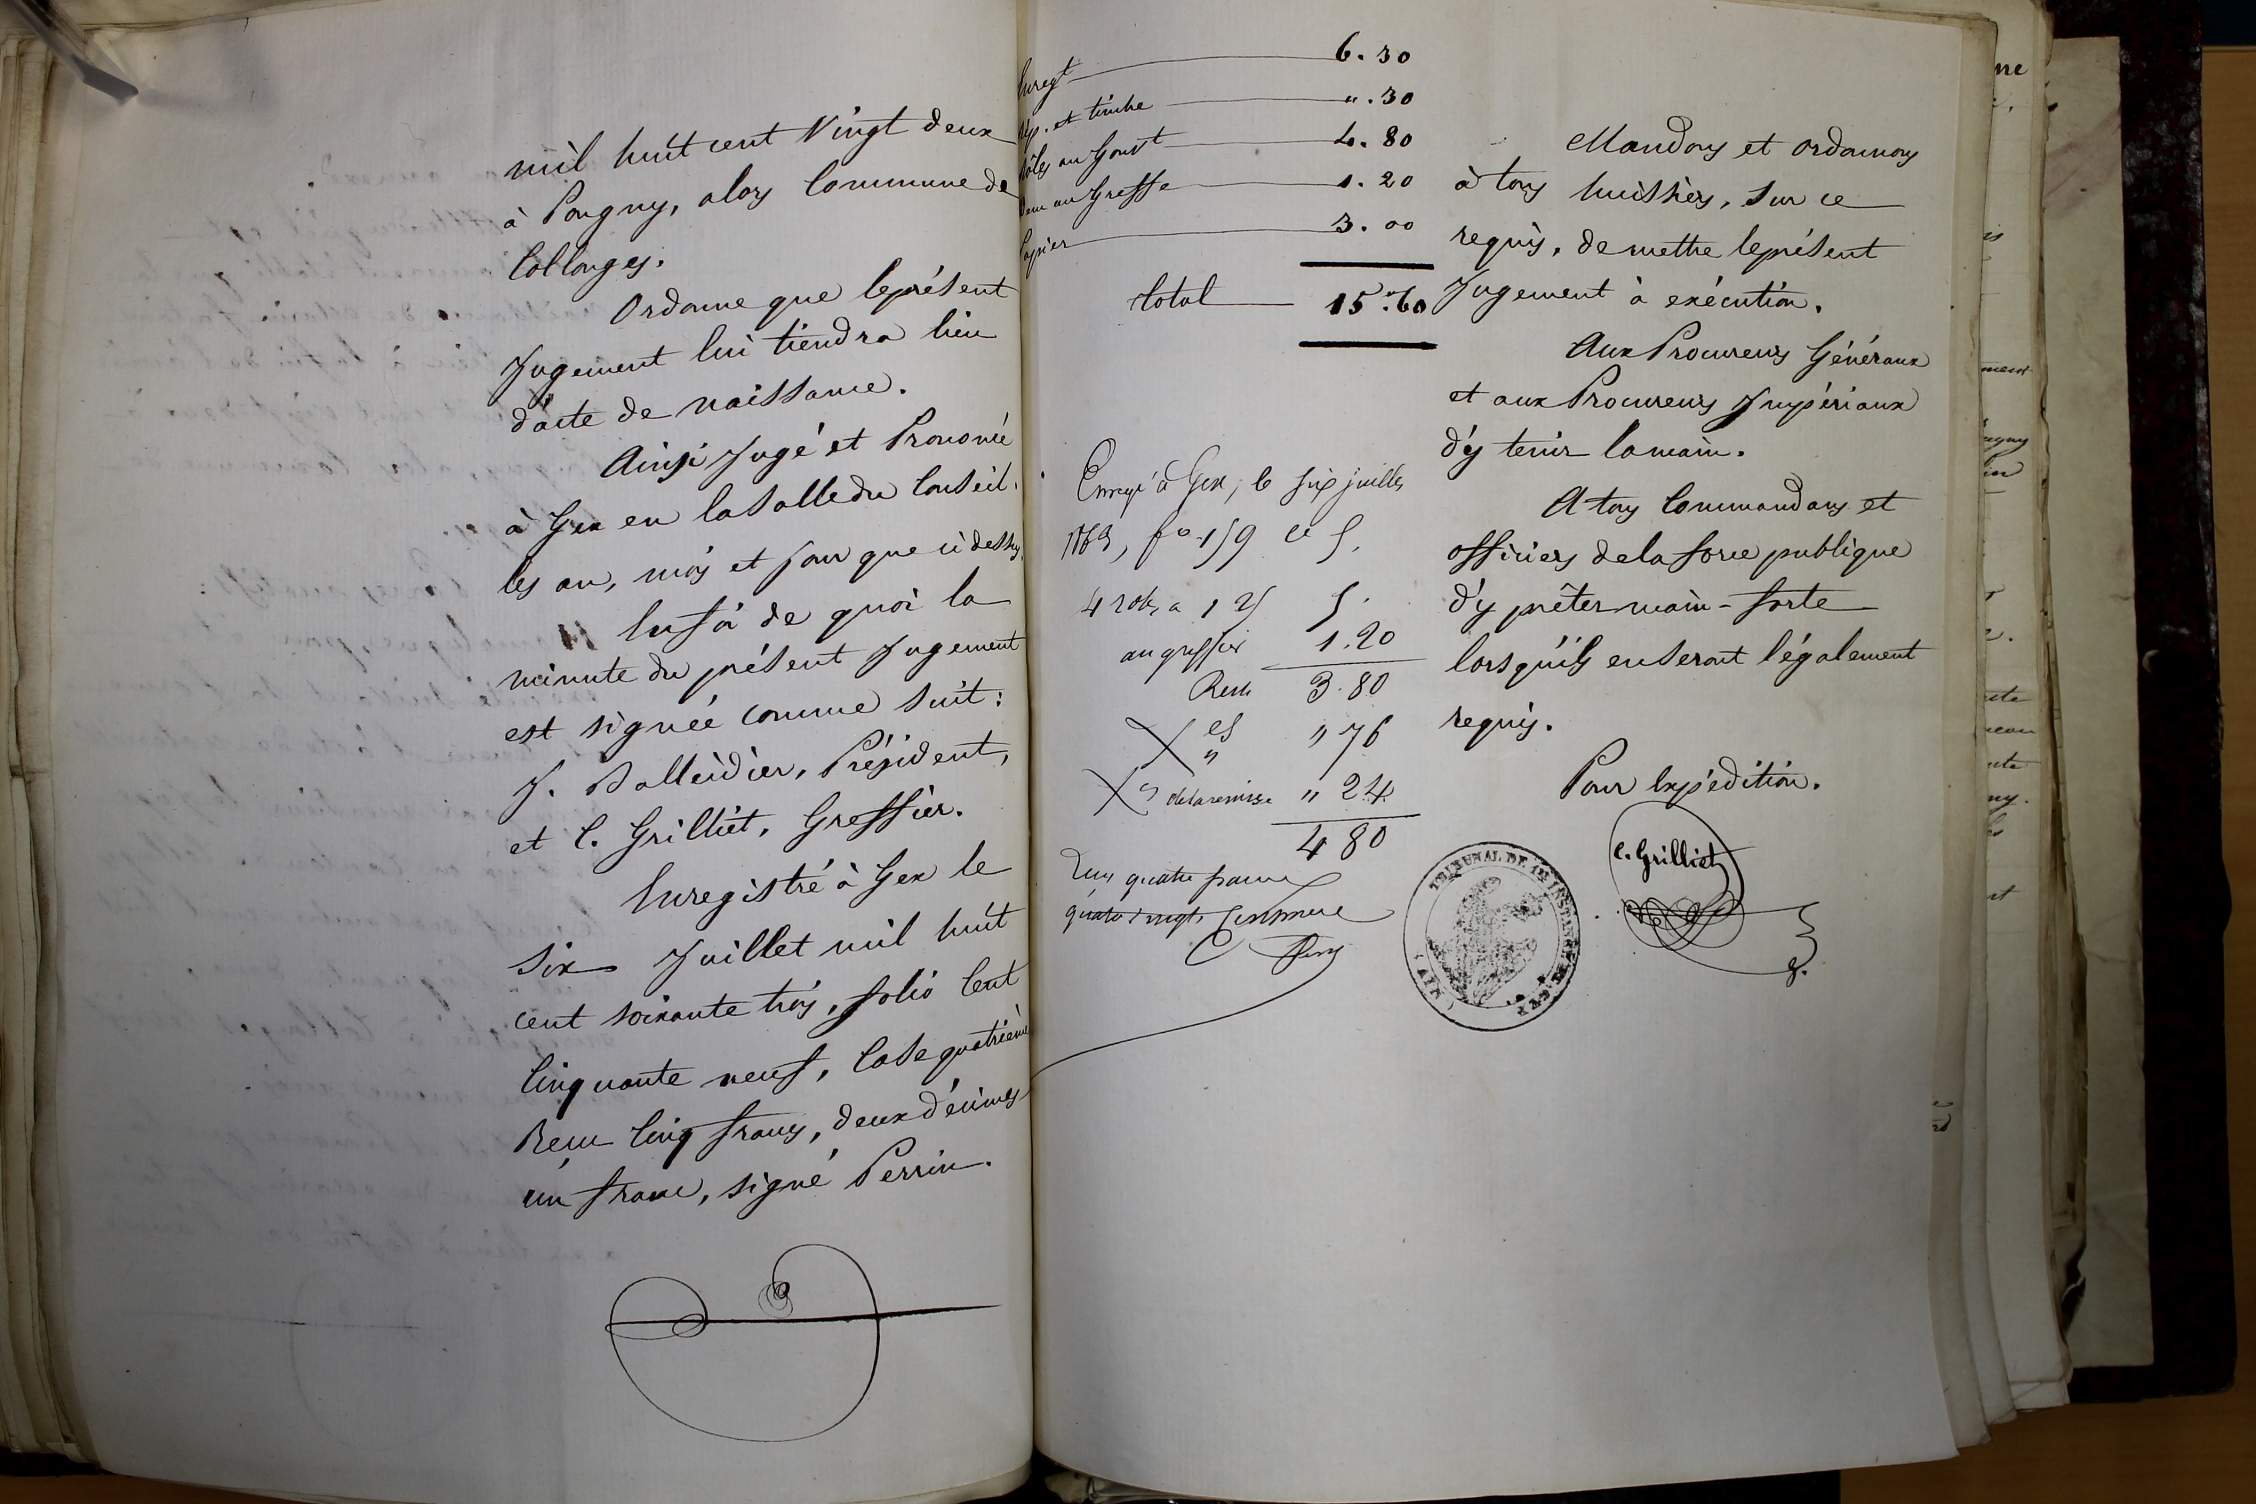 mil huit cent Vingt deux
à Pougny, alors Commune de
Collonges.
Ordonne que le présent
Jugement lui tiendra lieu
d'acte de naissance.
Ainsi Jugé et Prononcé
à Gex en la Salle du Conseil.
les an, mois et jour que ci dessus,
En foi de quoi la
minute du présent Jugement
est signée comme suit:
J. Balleidier, Président,
et C. Grilliet, Greffier.
Enregistré à Gex le
Six Juillet mil huit
cent soixante trois, folio Cent
Cinquante neuf, Case quatrième
Reçu Cinq francs, deux décimes
un franc, signé Perrin.
Enregt 6.30
et timbre ".30
Rôles au Gouvt 4.80
au Greffe 1.20
Papier 3.00
total 15.60
Enregé à Gex, le six juillet
1863, fo 159 ce 5.
4 roles a 1 25 5.
au greffier 1.20
Reste 3.80
" 76
de la remise " 24
4 80
Reçu quatre francs
quatre vingts Centimes
Mandons et ordonnons
à tous huissiers, sur ce
requis, de mettre le présent
Jugement à exécution.
Aux Procureurs Généraux
et aux Procureurs Impériaux
d'y tenir la main.
A tous Commandans et
officiers de la force publique
d'y prêter main-forte
lorsqu'ils en seront légalement
requis.
Pour Expédition.
C. Grilliet
TRIBUNAL DE 1RE INSTANCE DE GEX
(AIN)